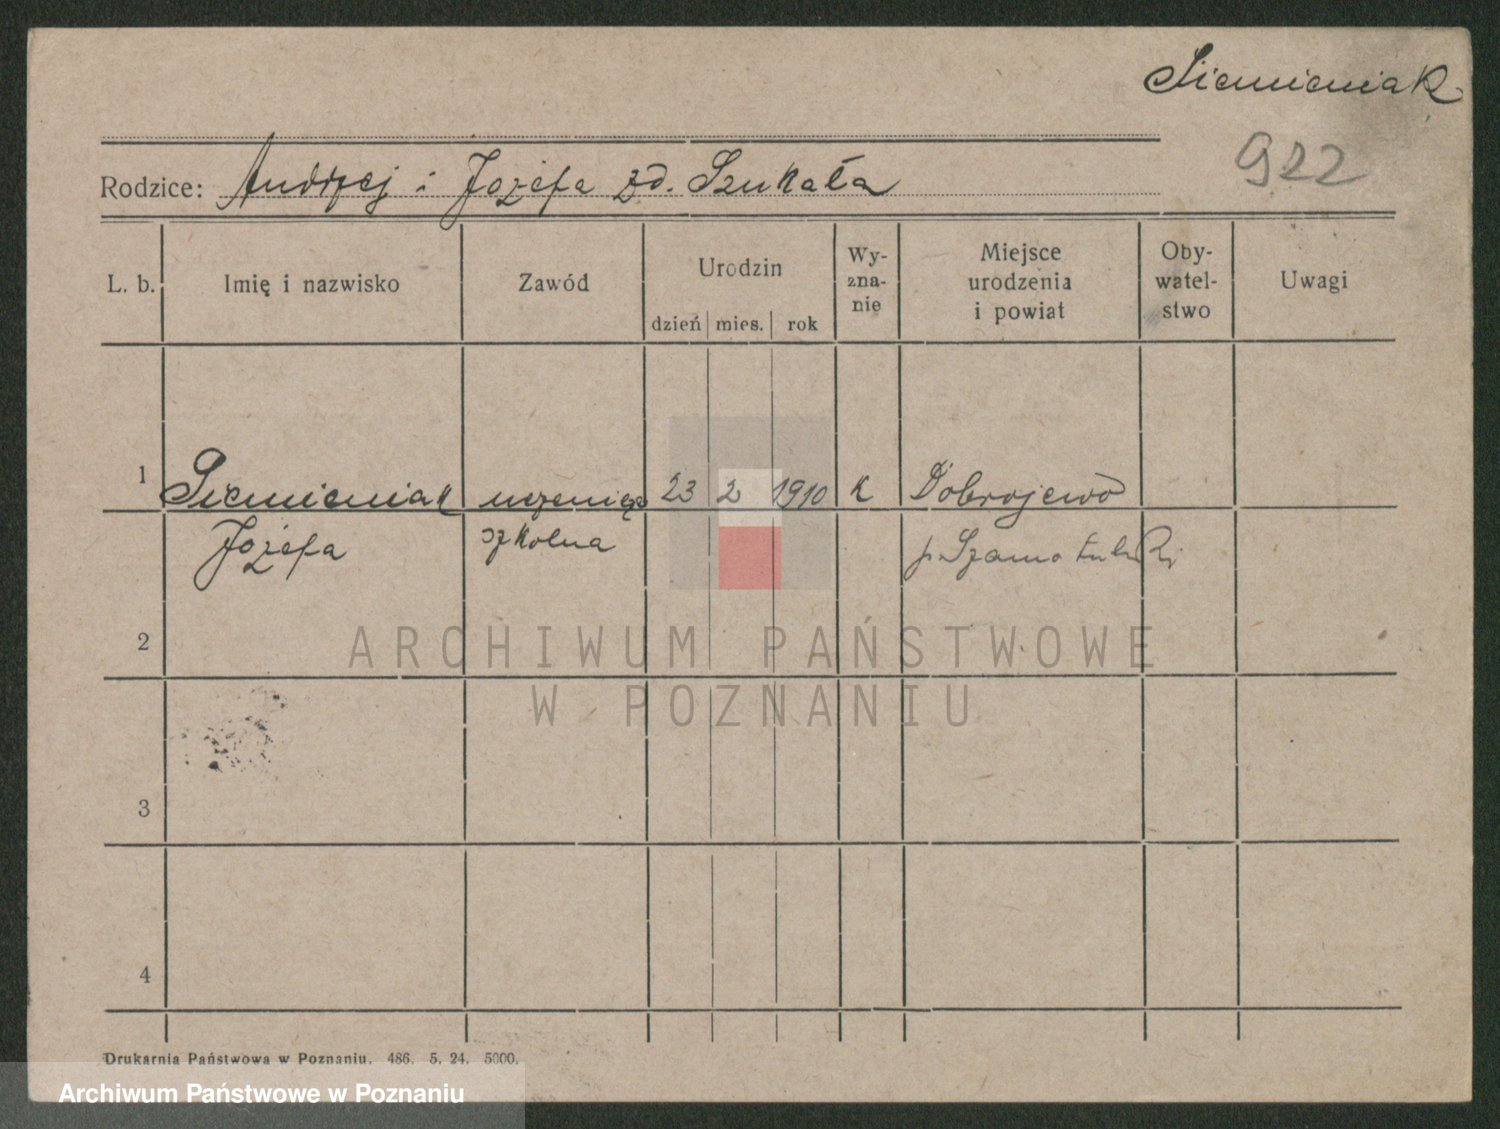 Siemieniak
922
Rodzice: Andrzej i Jozefa zd. Szukała
L. b.
Imię i nazwisko
Zawód
Urodzin
dzień mies. rok
Wy-
zna-
nie
Miejsce
urodzenia
i powiat
Oby-
watel-
stwo
Uwagi
1 Siemieniak uczenica 23 2 1910 k Dobrojewo
Jozefa szkolna p. Szamotulski
2
3
4
ARCHIWUM PAŃSTWOWE
W POZNANIU
Drukarnia Państwowa w Poznaniu. 486. 5. 24. 5000.
Archiwum Państwowe w Poznaniu